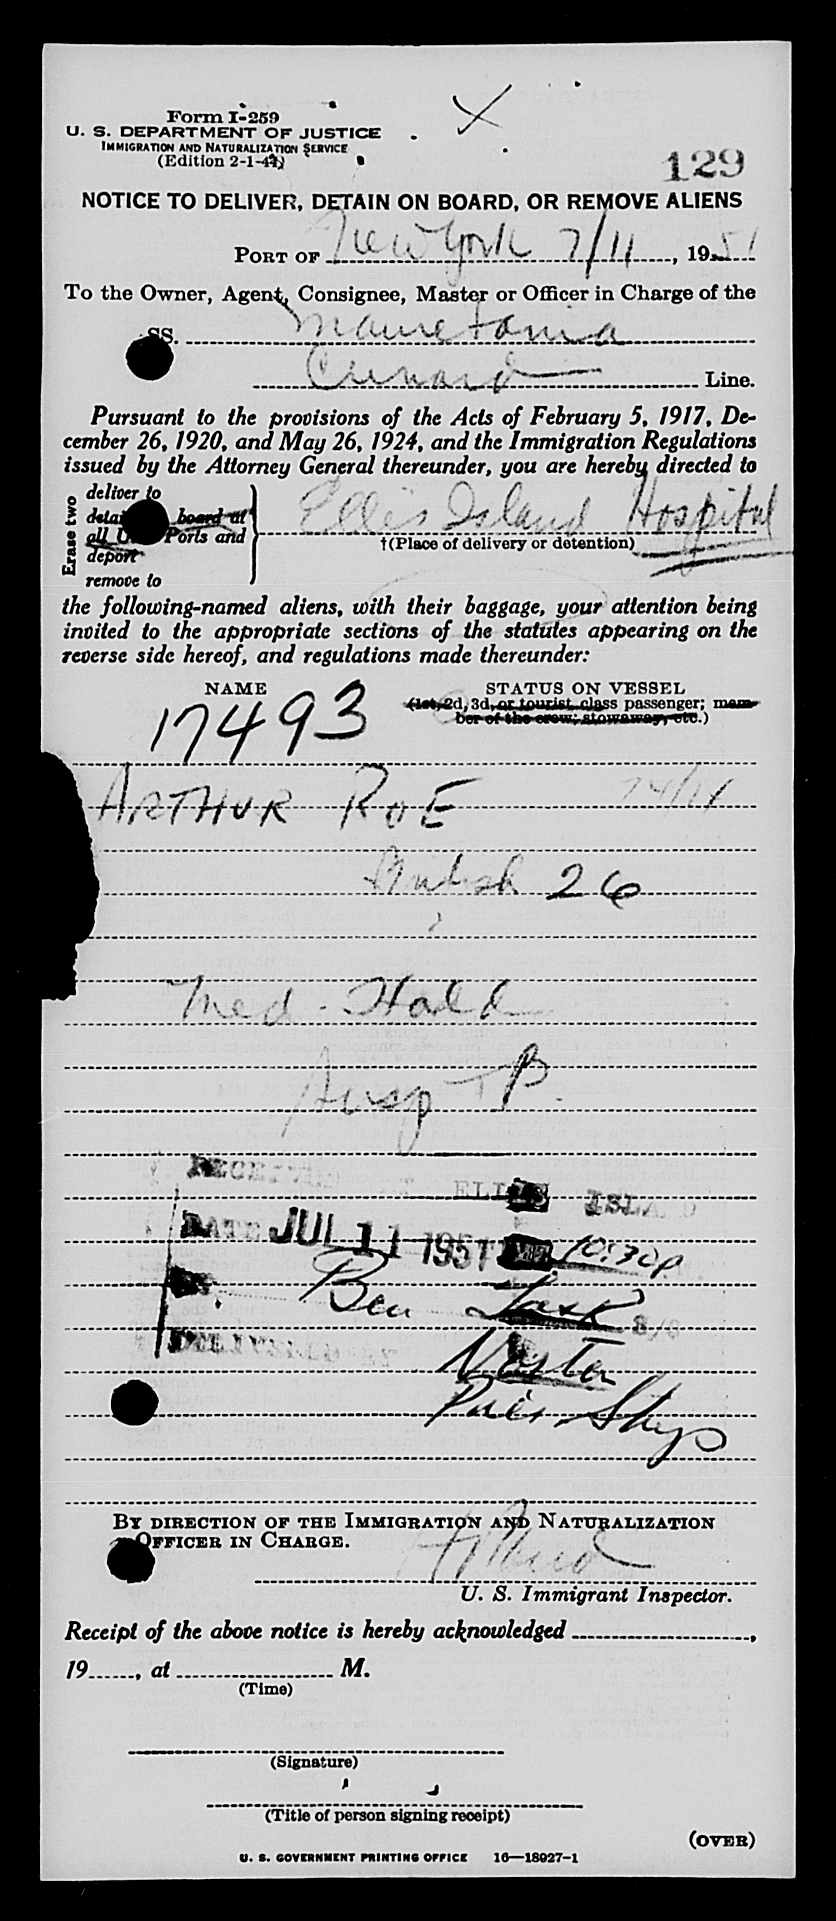 Form I-259
U. S. DEPARTMENT OF JUSTICE
IMMIGRATION AND NATURALIZATION SERVICE
(Edition 2-1-4
129
NOTICE TO DELIVER, DETAIN ON BOARD, OR REMOVE ALIENS
PORT OF New York 7/11, 1951
To the Owner, Agent, Consignee, Master or Officer in Charge of the
SS. Mauretania
Cunard Line.
Pursuant to the provisions of the Acts of February 5, 1917, De-
cember 26, 1920, and May 26, 1924, and the Immigration Regulations
issued by the Attorney General thereunder, you are hereby directed to
Erase two
deliver to
detai board at
all U Ports and
deport
remove to
Ellis Island Hospital
†(Place of delivery or detention)
the following-named aliens, with their baggage, your attention being
invited to the appropriate sections of the statutes appearing on the
reverse side hereof, and regulations made thereunder:
NAME
STATUS ON VESSEL
(1st, 2d, 3d, or tourist class passenger; mem-
ber of the crew; stowaway, etc.)
17493
ARTHUR ROE
British 26
Med. Hold
Susp TB.
RECEIVED ELLIS ISLAND
DATE JUL 11 1951 TIME 10:30p
BY Ben
DELIVERED BY
BY DIRECTION OF THE IMMIGRATION AND NATURALIZATION
OFFICER IN CHARGE.
U. S. Immigrant Inspector.
Receipt of the above notice is hereby acknowledged ,
19 , at M.
(Time)
(Signature)
(Title of person signing receipt)
(OVER)
U. S. GOVERNMENT PRINTING OFFICE 16—18027-1